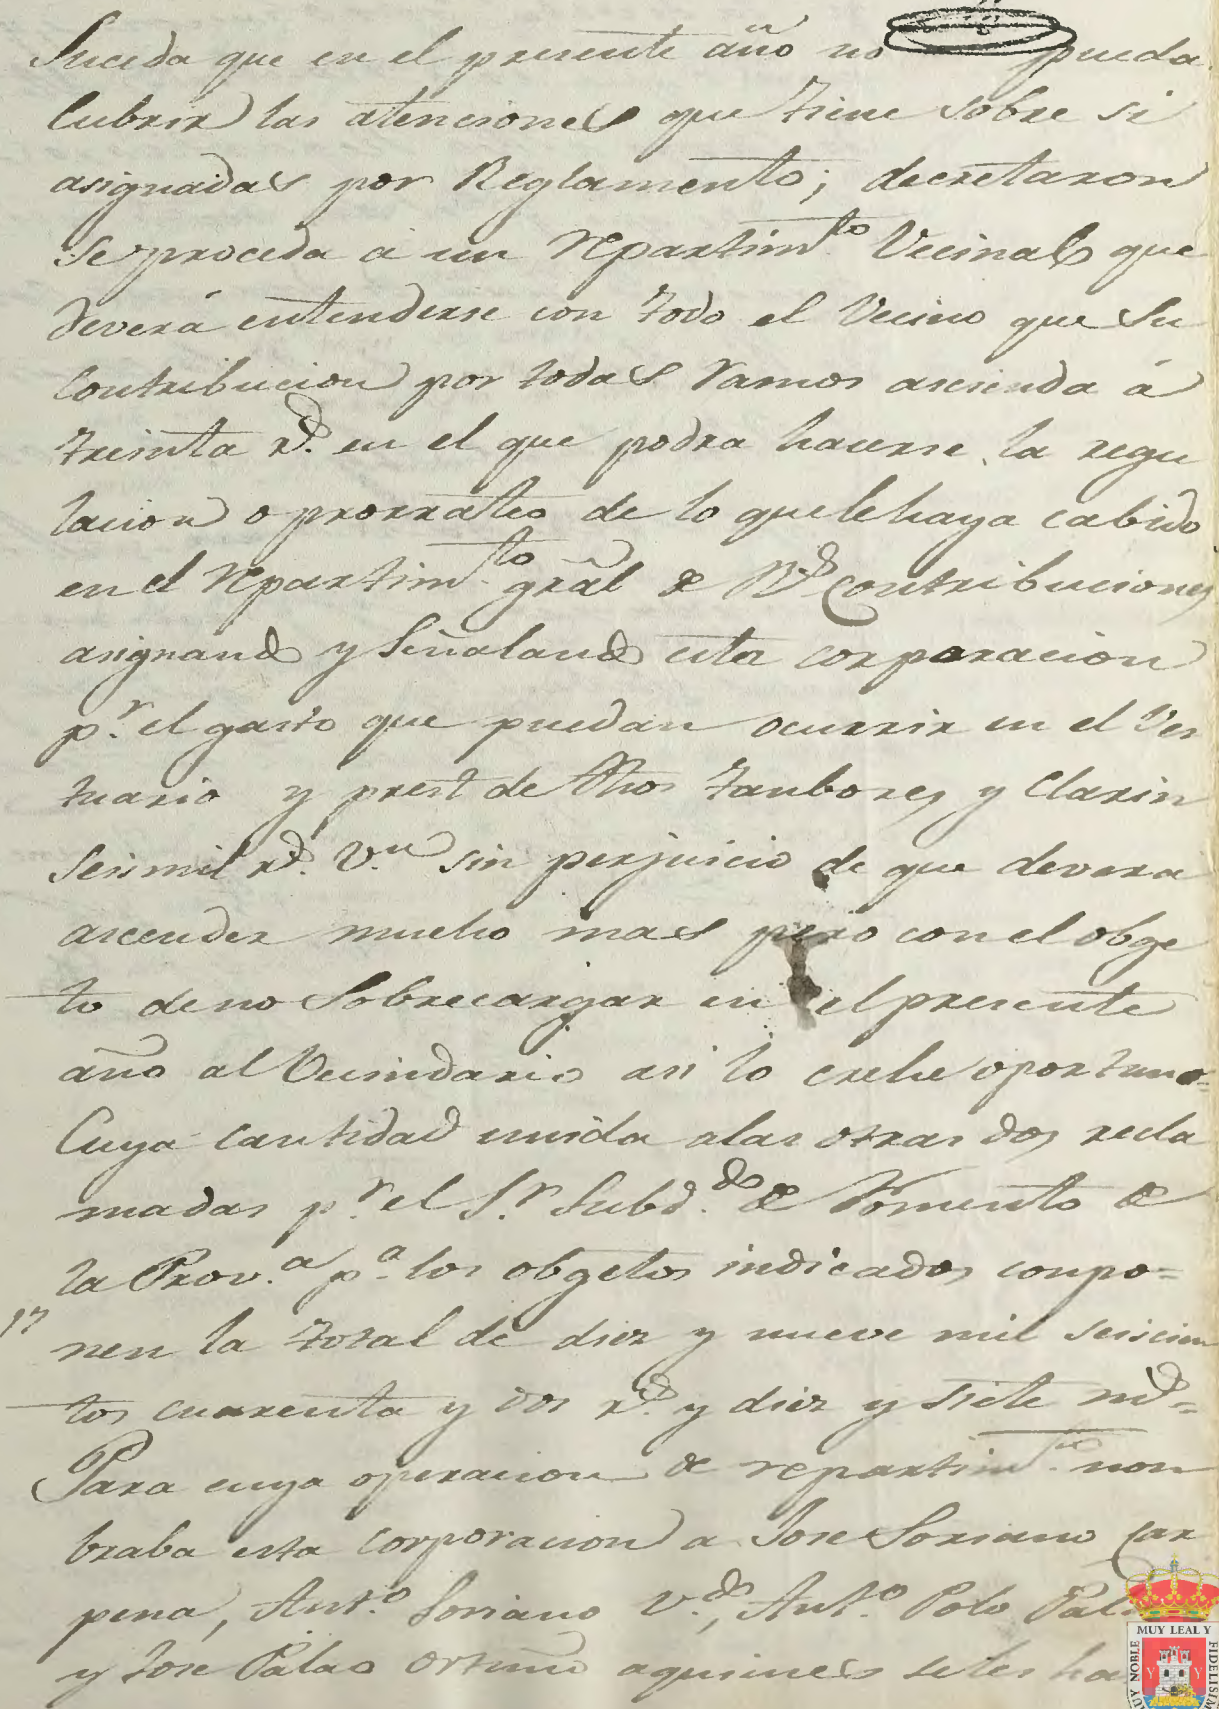 Suceda que en el presente año no pueda
Cubrir las atenciones que tiene sobre si
asignadas por Reglamento; decretaron
se proceda á un repartim.to Vecinal que
deverá entenderse con todo el Vecino que su
Contribucion por todas ramos ascienda á
treinta r.s en el que podra hacerse la regu
lacion o prorrateo de lo que le haya cabido
en el repartim.to gral de R.s Contribuciones
asignando y señalando esta corporacion
p.r el gasto que puedan ocurrir en el Ves
tuario y prest de dhos tanbores y Clarin
seis mil r.s v.n sin perjuicio de que devera
ascender mucho mas pero con el obge
to de no sobrecargar en el presente
año al Vecindario asi lo crehe oportuno=
Cuya cantidad unida alas otras dos recla
madas p.r el S.r Subd.do de Fomento de
la Prov.a p.a los obgetos indicados conpo=
17
nen la total de diez y nueve mil seiscien
tos cuarenta y dos r.s y diez y siete ms=
Para cuya operacion de repartim.to non
braba esta corporacion a Jose Soriano Car
pena, Ant.o Soriano V.s, Ant.o Polo
y Jose Palao Ortuño aquienes seles ha
MUY NOBLE MUY LEAL Y